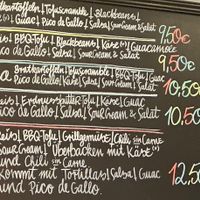 kartoffeln | Tofuscramble | Blackbeans |
Guac | Käse (v) | SourCream & Salat
Pico de Gallo | Salsa
eis | BBQ-Tofu | Blackbeans | 9,50€
Käse (v) | Guacamole
de Gallo | Salsa | SourCream & Salat
a Bratkartoffeln | Tofuscramble | BBQ-Tofu | Guac 9,50€
Pico de Gallo | Käse | Salsa | SourCream | Salat
eis | Erdnussbutter Tofu | Käse | Guac 10,50
Pico de Gallo | Salsa | SourCream | Salat
Reis | BBQ-Tofu | Grillgemüse | Chili sin Carne 10,50
SourCream | Überbacken mit Käse (v)
und Chili sin Carne
kommt mit Tortillas | Salsa | Guac 12,50
und Pico de Gallo.